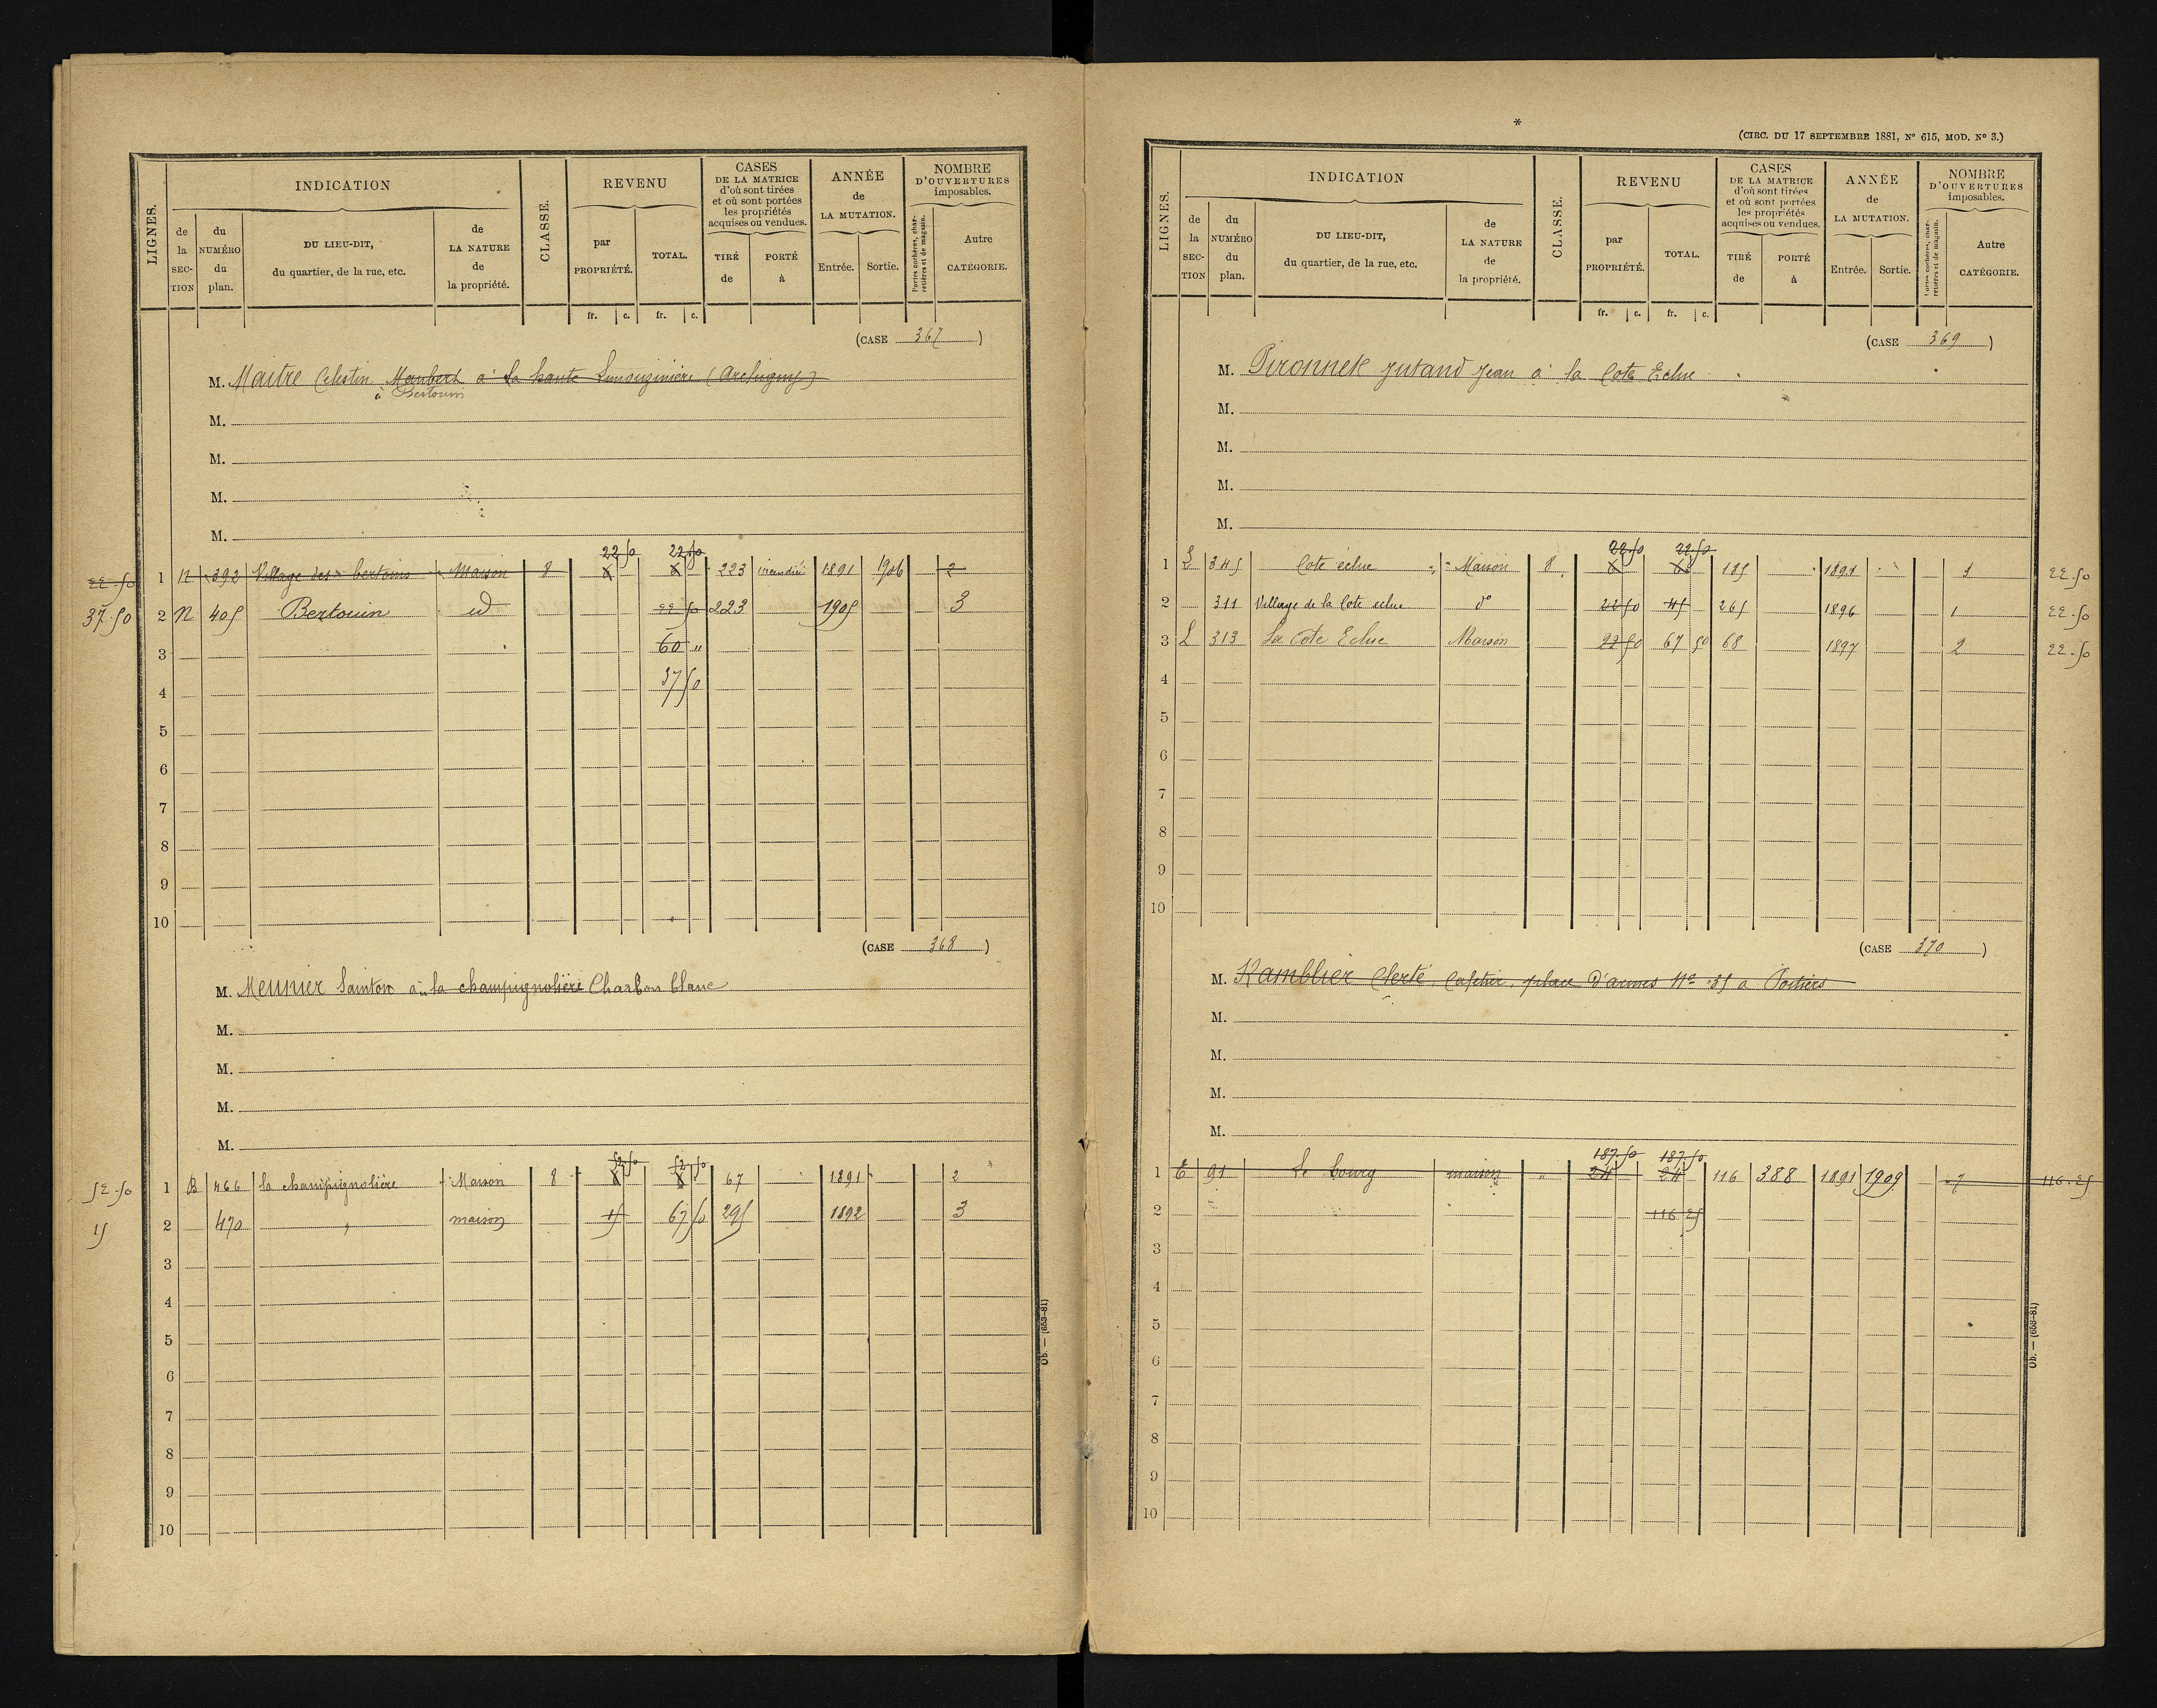 LIGNES.
INDICATION
de la SEC- TION
du NUMÉRO du plan.
DU LIEU-DIT, du quartier, de la rue, etc.
de LA NATURE de la propriété.
CLASSE.
REVENU
par PROPRIÉTÉ.
TOTAL.
fr. c. fr. c.
CASES DE LA MATRICE d'où sont tirées et où sont portées les propriétés acquises ou vendues.
TIRÉ de
PORTÉ à
ANNÉE de LA MUTATION.
Entrée. Sortie.
NOMBRE D'OUVERTURES imposables.
Portes cochères, char- retières et de magasin.
Autre CATÉGORIE.
(CASE 367)
M. Maitre Celestin Maubert à la haute Limouzinière (Archigny)
à Bertouin
M.
M.
M.
M.
22 50 22 50
22.50 1 N 392 Village des bertoins Maison 8 223 incendié 1891 1906 2
37.50 2 N 405 Bertouin id 22 50 223 1905 3
3 60 "
4 37 50
5
6
7
8
9
10
(CASE 368)
M. Meunier Sainton à la champignolière Charbon blanc
M.
M.
M.
M.
52 50 52 50
52.50 1 B 466 la champignolière Maison 8 67 1891 2
15 2 470 " maison 15 67 50 295 1892 3
3
4
5
6
7
8
9
10
Ob. — (653-81)
*
(CIRC. DU 17 SEPTEMBRE 1881, Nº 615, MOD. Nº 3.)
LIGNES.
INDICATION
de la SEC- TION
du NUMÉRO du plan.
DU LIEU-DIT, du quartier, de la rue, etc.
de LA NATURE de la propriété.
CLASSE.
REVENU
par PROPRIÉTÉ.
TOTAL.
fr. c. fr. c.
CASES DE LA MATRICE d'où sont tirées et où sont portées les propriétés acquises ou vendues.
TIRÉ de
PORTÉ à
ANNÉE de LA MUTATION.
Entrée. Sortie.
NOMBRE D'OUVERTURES imposables.
Portes cochères, char- retières et de magasin.
Autre CATÉGORIE.
(CASE 369)
M. Pironnet Jutand Jean à la Cote Eclue
M.
M.
M.
M.
22.50 22.50
1 L 345 Cote éclue Maison 8 185 1891 3 22.50
2 311 Village de la Cote eclue dº 22 50 45 265 1896 1 22.50
3 L 313 La Cote Eclue Maison 22 50 67 50 68 1897 2 22.50
4
5
6
7
8
9
10
(CASE 370)
M. Ramblier Clerté Cafetier, place d'armes Nº 35 à Poitiers
M.
M.
M.
M.
187.50 187.50
1 E 91 Le bourg maison " 24 24 116 388 1891 1909 7 116.25
2 116 25
3
4
5
6
7
8
9
10
Ob. — (653-81)